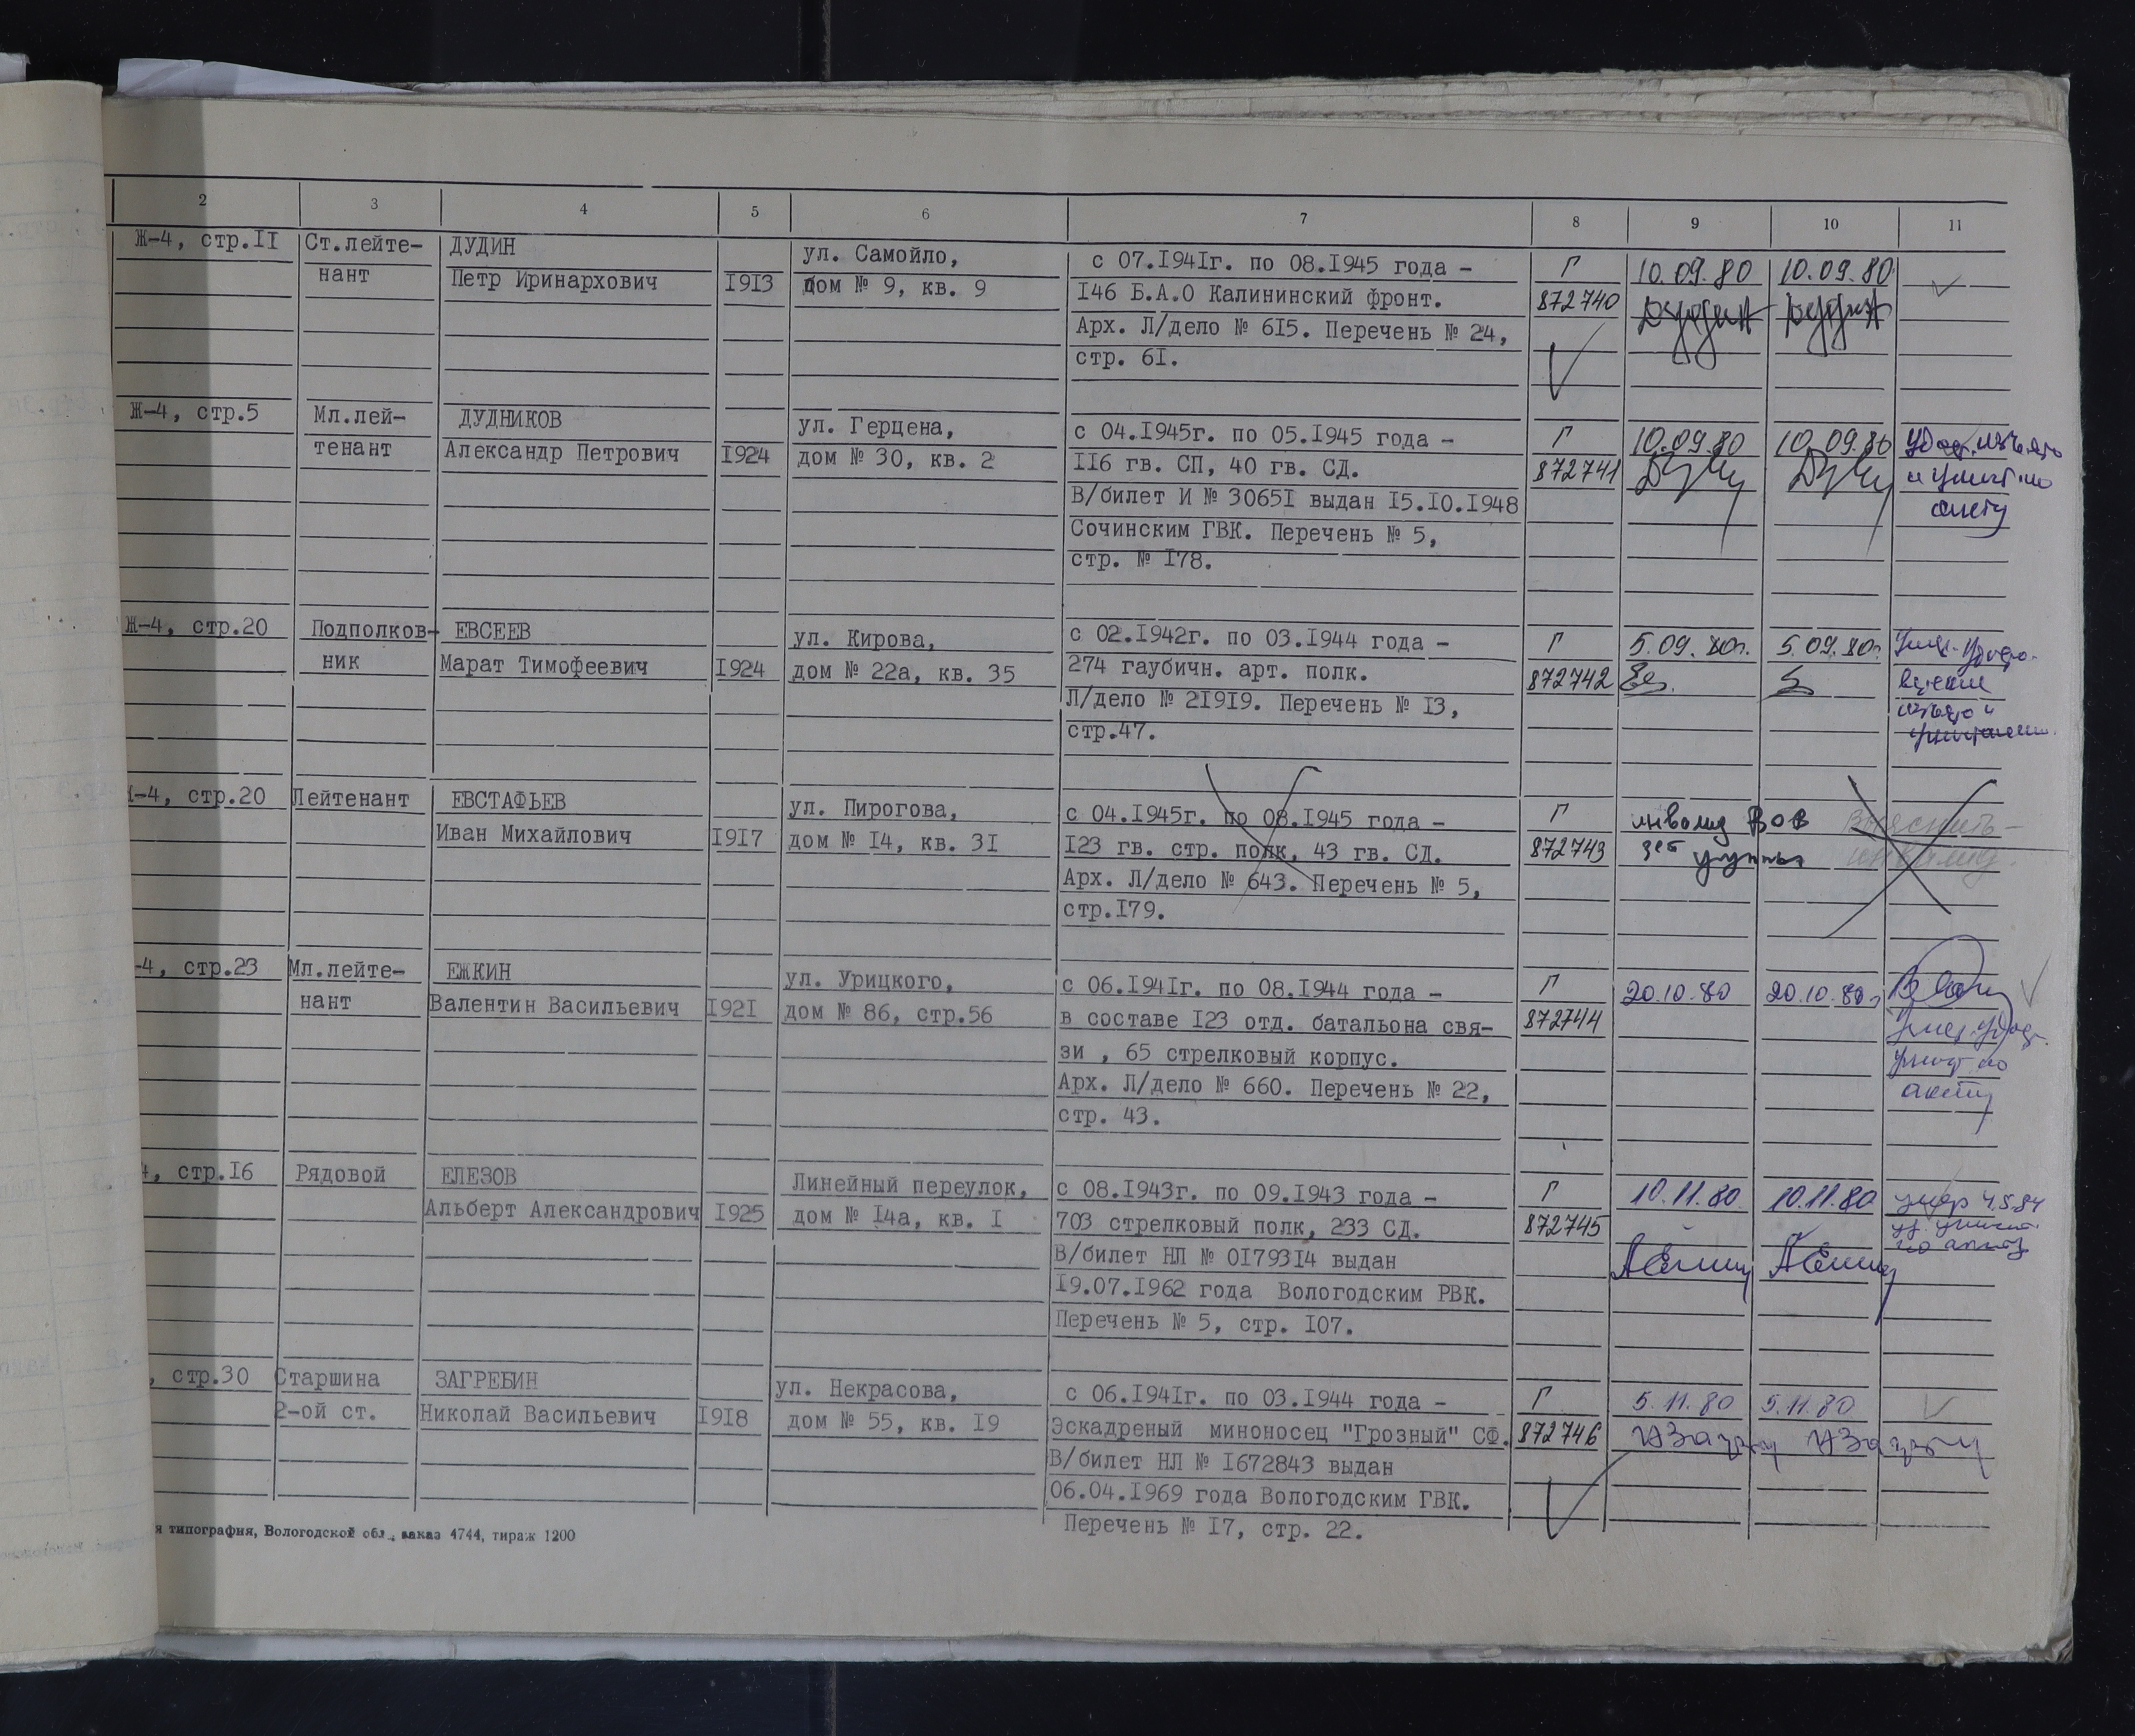 2 3 4 5 6 7 8 9 10 11
Ж-4, стр.II Ст.лейте- ДУДИН ул. Самойло, с 07.I94Iг. по 08.I945 года - Г 10.09.80 10.09.80
нант Петр Иринархович I9I3 дом № 9, кв. 9 I46 Б.А.О Калининский фронт. 872740 Дудин Дудин
Арх. Л/дело № 6I5. Перечень № 24,
стр. 6I.
Ж-4, стр.5 Мл.лей- ДУДНИКОВ ул. Герцена, с 04.I945г. по 05.I945 года - Г 10.09.80 10.09.80 Удост. изъято
тенант Александр Петрович I924 дом № 30, кв. 2 II6 гв. СП, 40 гв. СД. 872741 и уничт. по
В/билет И № 3065I выдан I5.I0.I948 акту
Сочинским ГВК. Перечень № 5,
стр. № I78.
Ж-4, стр.20 Подполков- ЕВСЕЕВ ул. Кирова, с 02.I942г. по 03.I944 года - Г 5.09.80г. 5.09.80г.
ник Марат Тимофеевич I924 дом № 22а, кв. 35 274 гаубичн. арт. полк. 872742
Л/дело № 2I9I9. Перечень № I3,
стр.47.
-4, стр.20 Лейтенант ЕВСТАФЬЕВ ул. Пирогова, с 04.I945г. по 08.I945 года - Г инвалид ВОВ Выяснить -
Иван Михайлович I9I7 дом № I4, кв. 3I I23 гв. стр. полк, 43 гв. СД. 872743 группы инвалид.
Арх. Л/дело № 643. Перечень № 5,
стр.I79.
-4, стр.23 Мл.лейте- ЕЖКИН ул. Урицкого, с 06.I94Iг. по 08.I944 года - Г 20.10.80 20.10.80г
нант Валентин Васильевич I92I дом № 86, стр.56 в составе I23 отд. батальона свя- 872744 Умер. Удост.
зи , 65 стрелковый корпус. уничт. по
Арх. Л/дело № 660. Перечень № 22, акту
стр. 43.
4, стр.I6 Рядовой ЕЛЕЗОВ Линейный переулок, с 08.I943г. по 09.I943 года - Г 10.11.80. 10.11.80 умер 4.5.84
Альберт Александрович I925 дом № I4а, кв. I 703 стрелковый полк, 233 СД. 872745 уд. уничт.
В/билет НЛ № 0I793I4 выдан по акту
I9.07.I962 года Вологодским РВК.
Перечень № 5, стр. I07.
, стр.30 Старшина ЗАГРЕБИН ул. Некрасова, с 06.I94Iг. по 03.I944 года - Г 5.11.80 5.11.80
2-ой ст. Николай Васильевич I9I8 дом № 55, кв. I9 Эскадреный миноносец "Грозный" СФ. 872746
В/билет НЛ № I672843 выдан
06.04.I969 года Вологодским ГВК.
Перечень № I7, стр. 22.
я типография, Вологодской обл., заказ 4744, тираж 1200